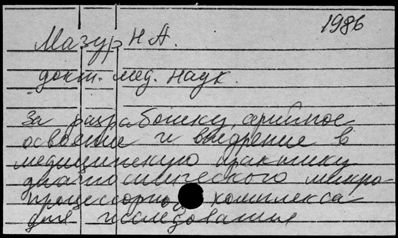 1986
Мазур Н А.
докт. мед. наук.
за разработку, серийное
освоение и внедрение в
медицинскую практику
диагностического микро-
процессорного комплекса
для исследования